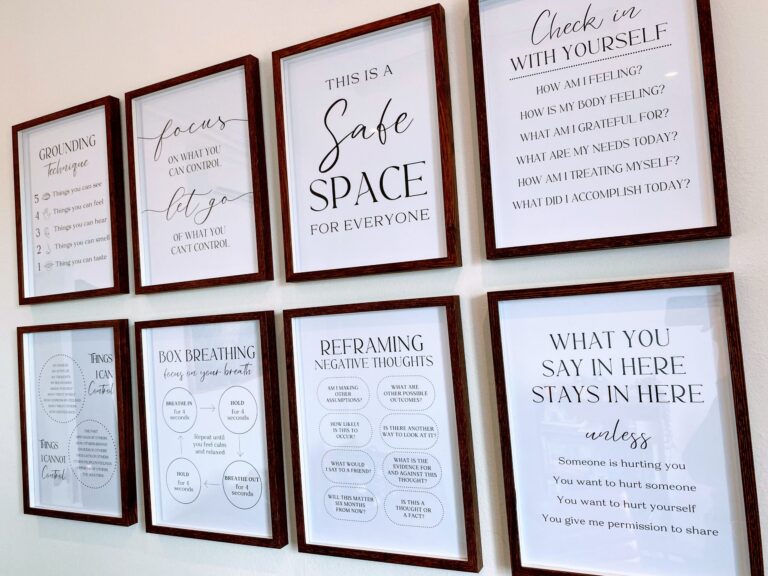 GROUNDING
technique
5 Things you can see
4 Things you can feel
3 Things you can hear
2 Things you can smell
1 Thing you can taste
focus
ON WHAT YOU
CAN CONTROL
let go
OF WHAT YOU
CAN'T CONTROL
THIS IS A
Safe
SPACE
FOR EVERYONE
Check in
WITH YOURSELF
HOW AM I FEELING?
HOW IS MY BODY FEELING?
WHAT AM I GRATEFUL FOR?
WHAT ARE MY NEEDS TODAY?
HOW AM I TREATING MYSELF?
WHAT DID I ACCOMPLISH TODAY?
THINGS
I CAN
Control
THINGS
I CANNOT
Control
BOX BREATHING
focus on your breath
BREATHE IN
for 4
seconds
HOLD
for 4
seconds
Repeat until
you feel calm
and relaxed
HOLD
for 4
seconds
BREATHE OUT
for 4
seconds
REFRAMING
NEGATIVE THOUGHTS
AM I MAKING
OTHER
ASSUMPTIONS?
WHAT ARE
OTHER POSSIBLE
OUTCOMES?
HOW LIKELY
IS THIS TO
OCCUR?
IS THERE ANOTHER
WAY TO LOOK AT IT?
WHAT WOULD
I SAY TO A FRIEND?
WHAT IS THE
EVIDENCE FOR
AND AGAINST
THIS THOUGHT?
WILL THIS MATTER
SIX MONTHS
FROM NOW?
IS THIS A
THOUGHT OR
A FACT?
WHAT YOU
SAY IN HERE
STAYS IN HERE
unless
Someone is hurting you
You want to hurt someone
You want to hurt yourself
You give me permission to share